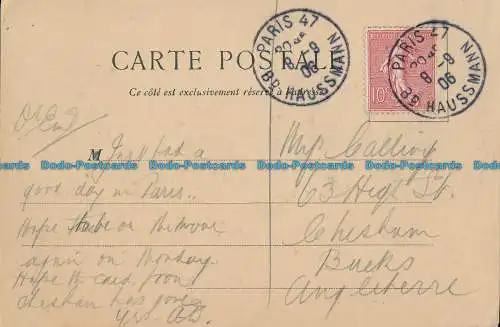 PARIS 47
8-9
06
BD HAUSSMANN
10c
PARIS 47
8-9
06
BD HAUSSMANN
CARTE POSTALE
Ce côté est exclusivement réservé à l'adresse
M
Dodo-Postcards Dodo-Postcards Dodo-Postcards Dodo-Postcards Dodo-Postcards
Just had a
good day in Paris..
Hope to be on the move
again on Monday
Hope the card from
Chesham has gone
Yrs AD.
63 High St.
Chesham
Bucks
Angleterre